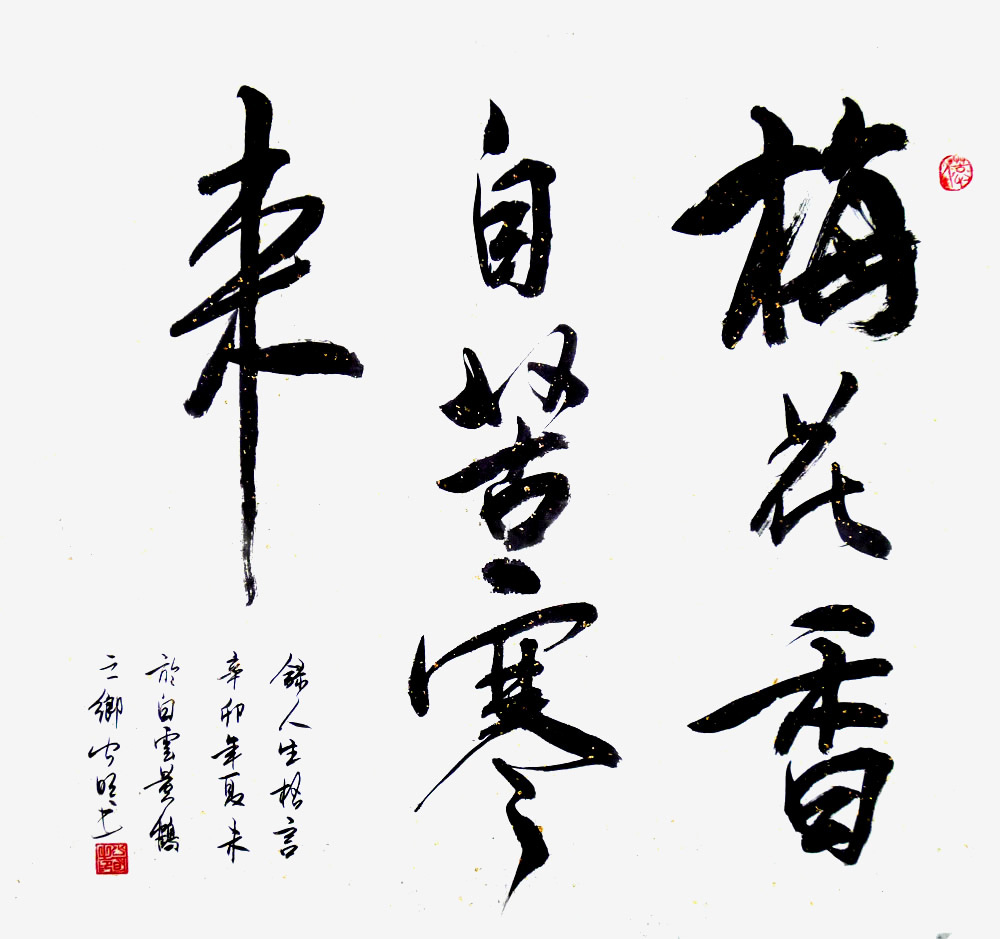 梅花香
自苦寒
来
録人生格言
辛卯年夏末
於白雲黄鶴
之鄉